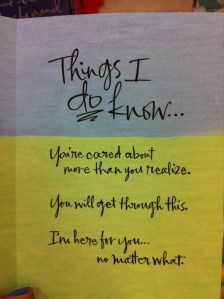 Things I
do know...
You're cared about
more than you realize.
You will get through this.
I'm here for you...
no matter what.